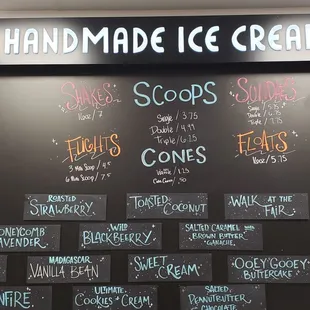 HANDMADE ICE CREA
SHAKES
16oz / 7
SCOOPS
Single / 3.75
Double / 4.99
Triple / 6.25
SUNDAES
Single / 5.75
FLIGHTS
3 Mini Scoop / 4.5
6 Mini Scoop / 7.5
CONES
Waffle / 1.25
Cake Cone / .50
FLOATS
16oz / 5.75
ROASTED
STRAWBERRY
TOASTED
COCONUT
WALK AT THE
FAIR
ONEYCOMB
AVENDER
WILD
BLACKBERRY
SALTED CARAMEL
BROWN BUTTER
GANACHE
MADAGASCAR
VANILLA BEAN
SWEET
CREAM
OOEY GOOEY
BUTTERCAKE
NFIRE
ULTIMATE
COOKIES + CREAM
SALTED
PEANUTBUTTER
CHOCOLATE